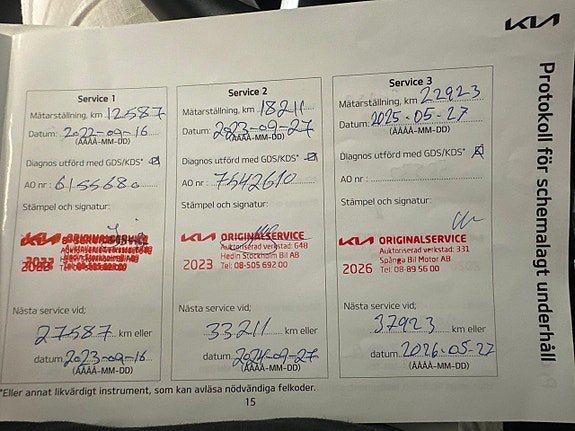 KIA
Protokoll för schemalagt underhåll
Service 1
Mätarställning, km 12587
Datum: 2022-09-16
(ÅÅÅÅ-MM-DD)
Diagnos utförd med GDS/KDS*
AO nr : 6155680
Stämpel och signatur:
KIA ORIGINALSERVICE
Nästa service vid;
27587 km eller
datum 2023-09-16
(ÅÅÅÅ-MM-DD)
Service 2
Mätarställning, km 18211
Datum: 2023-09-27
(ÅÅÅÅ-MM-DD)
Diagnos utförd med GDS/KDS*
AO nr : 7542610
Stämpel och signatur:
KIA ORIGINALSERVICE
Auktoriserad verkstad: 648
Hedin Stockholm Bil AB
2023 Tel: 08-505 692 00
Nästa service vid;
33211 km eller
datum 2024-09-27
(ÅÅÅÅ-MM-DD)
Service 3
Mätarställning, km 22923
Datum: 2025-05-27
(ÅÅÅÅ-MM-DD)
Diagnos utförd med GDS/KDS*
AO nr :
Stämpel och signatur:
KIA ORIGINALSERVICE
Auktoriserad verkstad: 331
Spånga Bil Motor AB
2026 Tel: 08-89 56 00
Nästa service vid;
37923 km eller
datum 2026-05-27
(ÅÅÅÅ-MM-DD)
*Eller annat likvärdigt instrument, som kan avläsa nödvändiga felkoder.
15